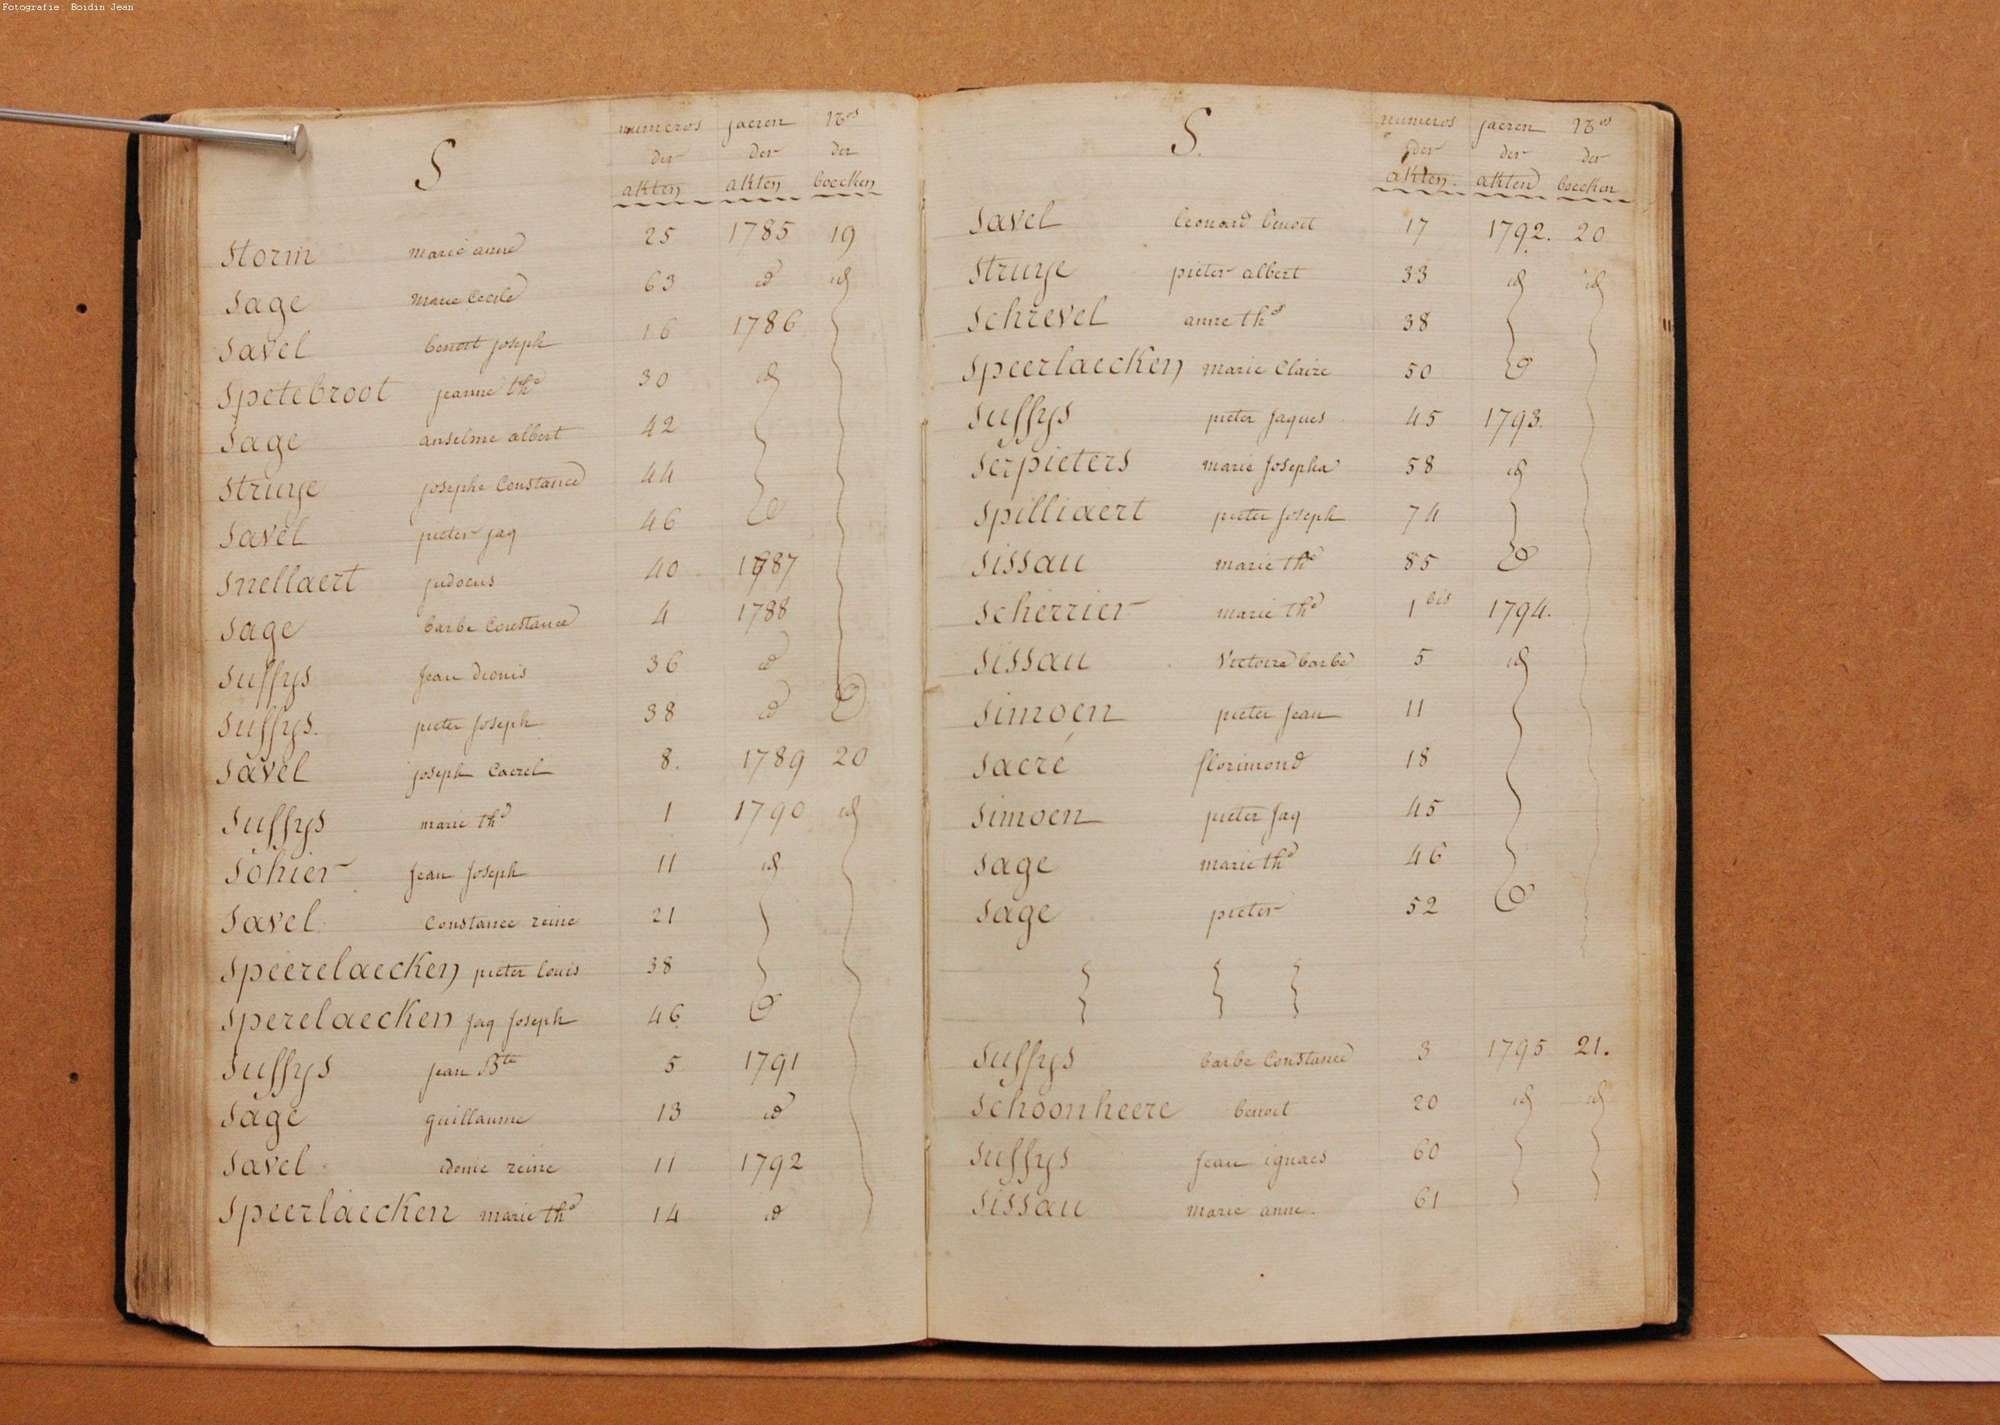 Fotografie: Boidin Jean
S
numeros der akten
jaeren der akten
Nos der boecken
Storm marie anne 25 1785 19
Sage marie Cecile 63 id id
Savel benoit joseph 16 1786
Spetebroot jeanne the 30 id
Sage anselme albert 42
Struye josephe Constance 44
Savel pieter jaq 46
Snellaert judocus 40 1787
Sage barbe Constance 4 1788
Suffys jean dionis 36 id
Suffys. pieter joseph 38 id
Savel joseph Caerel 8. 1789 20
Suffys marie the 1 1790 id
Sohier jean joseph 11 id
Savel Constance reine 21
Speerelaecken pieter louis 38
Sperelaecken jaq joseph 46
Suffys jean Bte 5 1791
Sage guillaume 13 id
Savel idonie reine 11 1792
Speerlaecken marie the 14 id
S.
numeros der akten.
jaeren der akten
Nos der boecken
Savel leonard benoit 17 1792. 20
Struye pieter albert 33 id id
Schrevel anne the 38
Speerlaecken marie Claire 50
Suffys pieter jaques 45 1793.
Serpieters marie josepha 58 id
Spilliaert pieter joseph 74
Sissau marie the 85
Scherrier marie the 1 bis 1794.
Sissau Victoire barbe 5 id
Simoen pieter jean 11
Sacré florimond 18
Simoen pieter jaq 45
Sage marie the 46
Sage pieter 52
Suffys barbe Constance 3 1795 21.
Schoonheere benoit 20 id id
Suffys jean ignaes 60
Sissau marie anne. 61